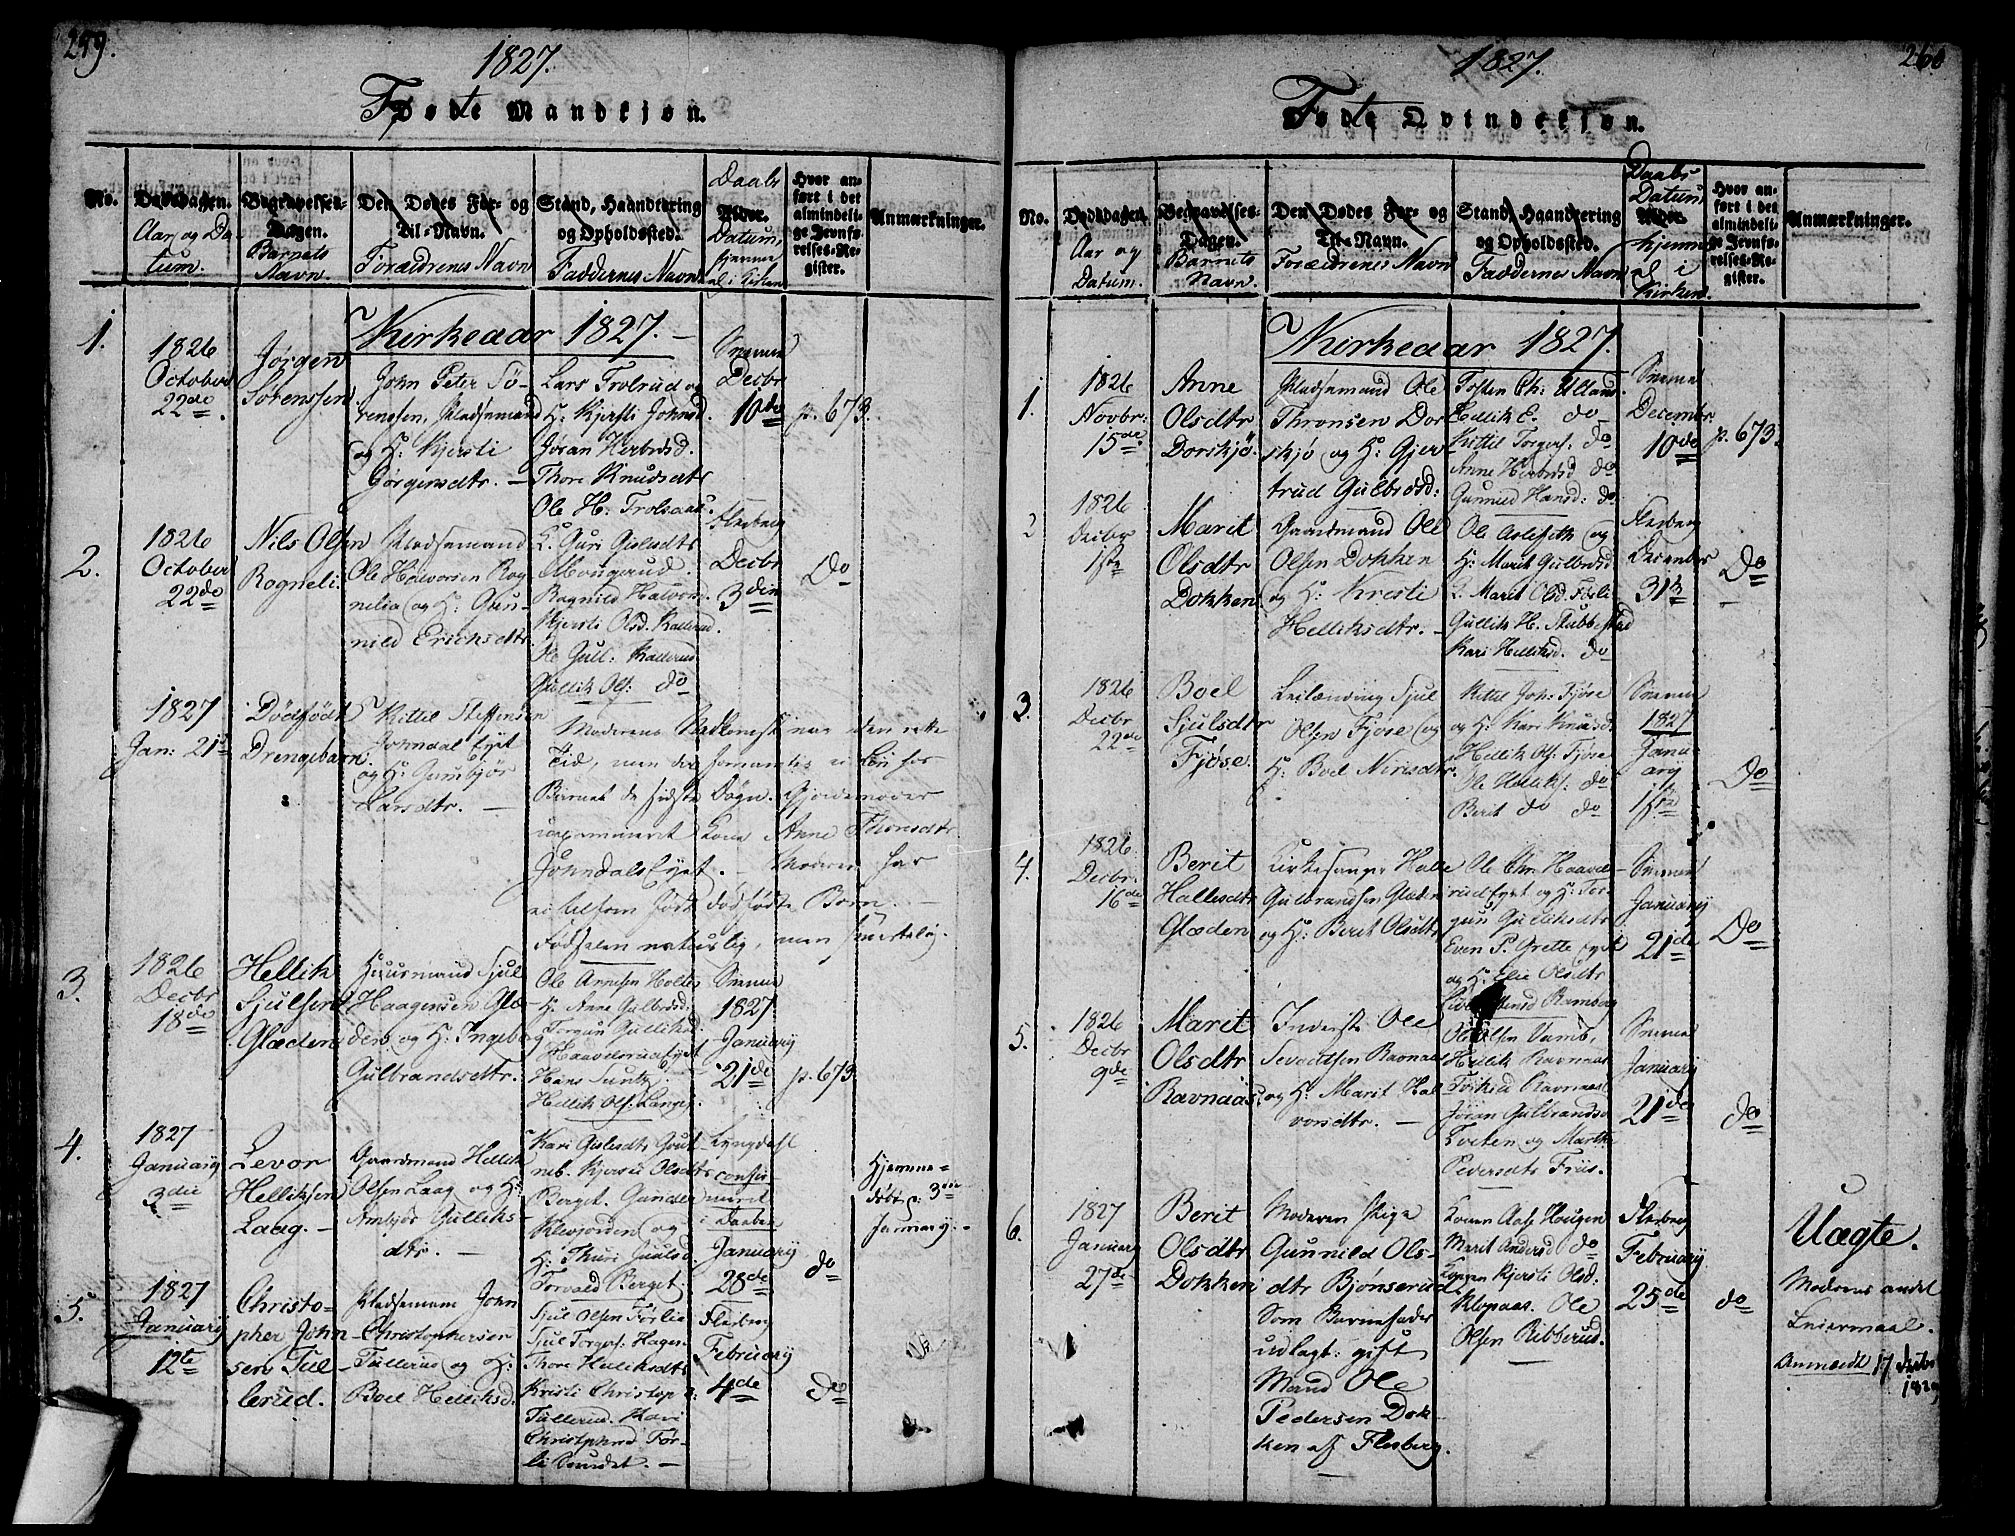 259.
1827.
Fødte Mandkjøn.
No.
Dødsdagen.
Aar og Da
tum.
Begravelses-
Dagen.
Barnets
Navn.
Den Dødes For- og
Til-Navn.
Forældrenes Navn
Stand, Haandtering
og Opholdssted.
Faddernes Navn
Daabs
Alder.
Datum,
hjemme
el. i Kirken
Hvor an-
ført i det
almindeli-
ge Jevnfø-
relses-Re-
gister.
Anmærkninger.
Kirkeaar 1827. -
1.
1826
October
22de.
Jørgen
Sørenssen.
John Peter Sø-
renssen, Pladsemand
og H: Kjersti
Jørgensdtr. -
Lars Trolrud og
H: Kjersti Johnsd.
Jøran Herbrsd.
Thore Knudsdtr
Ole H: Trolsaas.
Svenne
Decbr
10de
p. 673.
2.
1826
October
22de
Nils Olsen
Rogneli.
Pladsemand
Ole Halvorsen Rog
nelia og H: Gun-
nild Erichsdtr.
K. Guri Gislesdtr
Mougerud.
Ragnild Halvors.
Kjersti Olsd. Kallerud.
Ole Gull: Kallerud
Gullik Ols: do
Flesberg
Decbr
3die
Do
1827
Jan: 21de
Dødfødt
Drengebarn.
Kittil Steffensen
Johndal Eyet
og H: Gunbjør
Larsdtr. -
Moderens Nedkomst var den rette
Tid, men der fornamtes ei Liv hos
Barnet de sidste Døgn. Gjordemoder
uexamineret Kone Anne Thorsdtr
Johndals Eyet. - Moderen har
ei tilforn født dødfødte Børn. -
Fødselen naturlig, men smertelig.
3.
1826
Decbr
18de
Hellik
Sjulsen
Glæden
Huusmand Sjul
Haagensen Glæ-
den og H: Ingeborg
Gulbrandsdtr.
Ole Arnesen Holtes
H: Anne Gulbrsd:
Torgun Gulliksd.
Haavelsrud Eyet
Hans Suntz.
Hellik Ols: Langes:
Svenne
1827
January
21de
p. 673
4.
1827
January
3die
Levor
Helliksen
Laag. -
Gaardmand Hellik
Olsen Laag og H:
Ambjør Gulliks-
dtr. -
Kari Gislesdtr Grut
neb. Kjersti Olsdtr
Berget. Gunder
Klevjorden og
H: Thuri Juulsd.
Torvald Berget.
Lyngdahl
confir-
meret
i Daaben
January
28de
do
Hjemme-
døbt p: 3die
January. -
5.
1827
January
12te
Christo-
pher John
sen Tul
lerud.
Pladsemand John
Christophersen
Tullerud og H:
Boel Helliksd.
Sjul Olsen Førlie
Sjul Torgs: Hagen
Thore Helliksdtr
Kristi Christop:
Tullerud. Kari
Christphend Før-
li Roudet. -
Flesberg
February
4de
Do
260
1827.
Fødte Qvindekjøn.
No.
Dødsdagen.
Aar og
Datum.
Begravelses-
Dagen.
Barnets
Navn.
Den Dødes For- og
Til-Navn.
Forældrenes Navn
Stand, Haandtering
og Opholdssted.
Faddernes Navn
Daabs
Datum
Alder
hjemme
el. i
Kirken.
Hvor an-
ført i det
almindeli-
ge Jevnfø-
relses-Re-
gister.
Anmærkninger.
Kirkeaar 1827.
1.
1826
Novbr:
15de
Anne
Olsdtr
Dorskjø.
Pladsemand Ole
Thronsen Dor
skjø og H: Gjer
trud Gulbrdsd:
Tosten Ch: Ulland
Hellik E. do
Kittil Torgers: do
Anne Herbrsd do
Gunnild Hansd: do
Svenne
Decembr
10de
p. 673.
2
1826
Decbr
1ste
Marit
Olsdtr
Dokken
Gaardmand Ole
Olsen Dokken
og H: Kristi
Helliksdtr. -
Ole Aslefeth og
H: Marit Gulbrdsd
K. Marit Olsd. Førlie
Gullik H. Stubberud
Kari Helliksd. do
Flesberg
December
31te
Do
3.
1826
Decbr
22de
Boel
Sjulsdtr
Fjøse.
Leilænding Sjul
Olsen Fjøse og
H: Boel Nirisdtr.
Kittil Joh: Fjøse
og H: Kari Knudsd:
Hellik Ols: Fjøse
Ole Helliks: do
Berit do do
Svenne
1827
Janu-
ary
1ste
Do
4.
1826
Decbr:
16de
Berit
Hallesdtr
Glæden
Kirkesanger Halle
Gulbrandsen Glæden
og H: Berit Olsdtr
Ole Chr: Haavels-
rud Eyet og H: Tor-
gun Gulliksdtr
Even P. Grette eyet
og H: Elie Olsdtr
Ramberg
Svenne
January
21de
Do
5.
1826
Decbr
9de
Marit
Olsdtr
Ravnaas
Inderste Ole
Sevaldsen Ravnaas
og H: Marit Hal
vorsdtr. -
Ole Olsen Vamb,
Hellik Ravnaas
Torkild Ravnaas
Jøran Gulbrandsd
Tveten og Marthe
Pedersdtr Friis.
Svenne
January
21de
do
6.
1827
January
27de
Berit
Olsdtr
Dokken
Moderen Pige
Gunnild Ols-
dtr Bjønserud
Som Barnefader
udlagt: gift
Mand Ole
Pedersen Dok-
ken af Flesberg.
Konen Aase Hougen
Marit Andersd do
Koppen Kjersti Olsd.
Klopaas. Ole
Olsen Ribberud.
Flesberg
February
25de
do
Uægte.
Moderens andet
Leiermaal.
Anmeldt 17 Decbr
1829